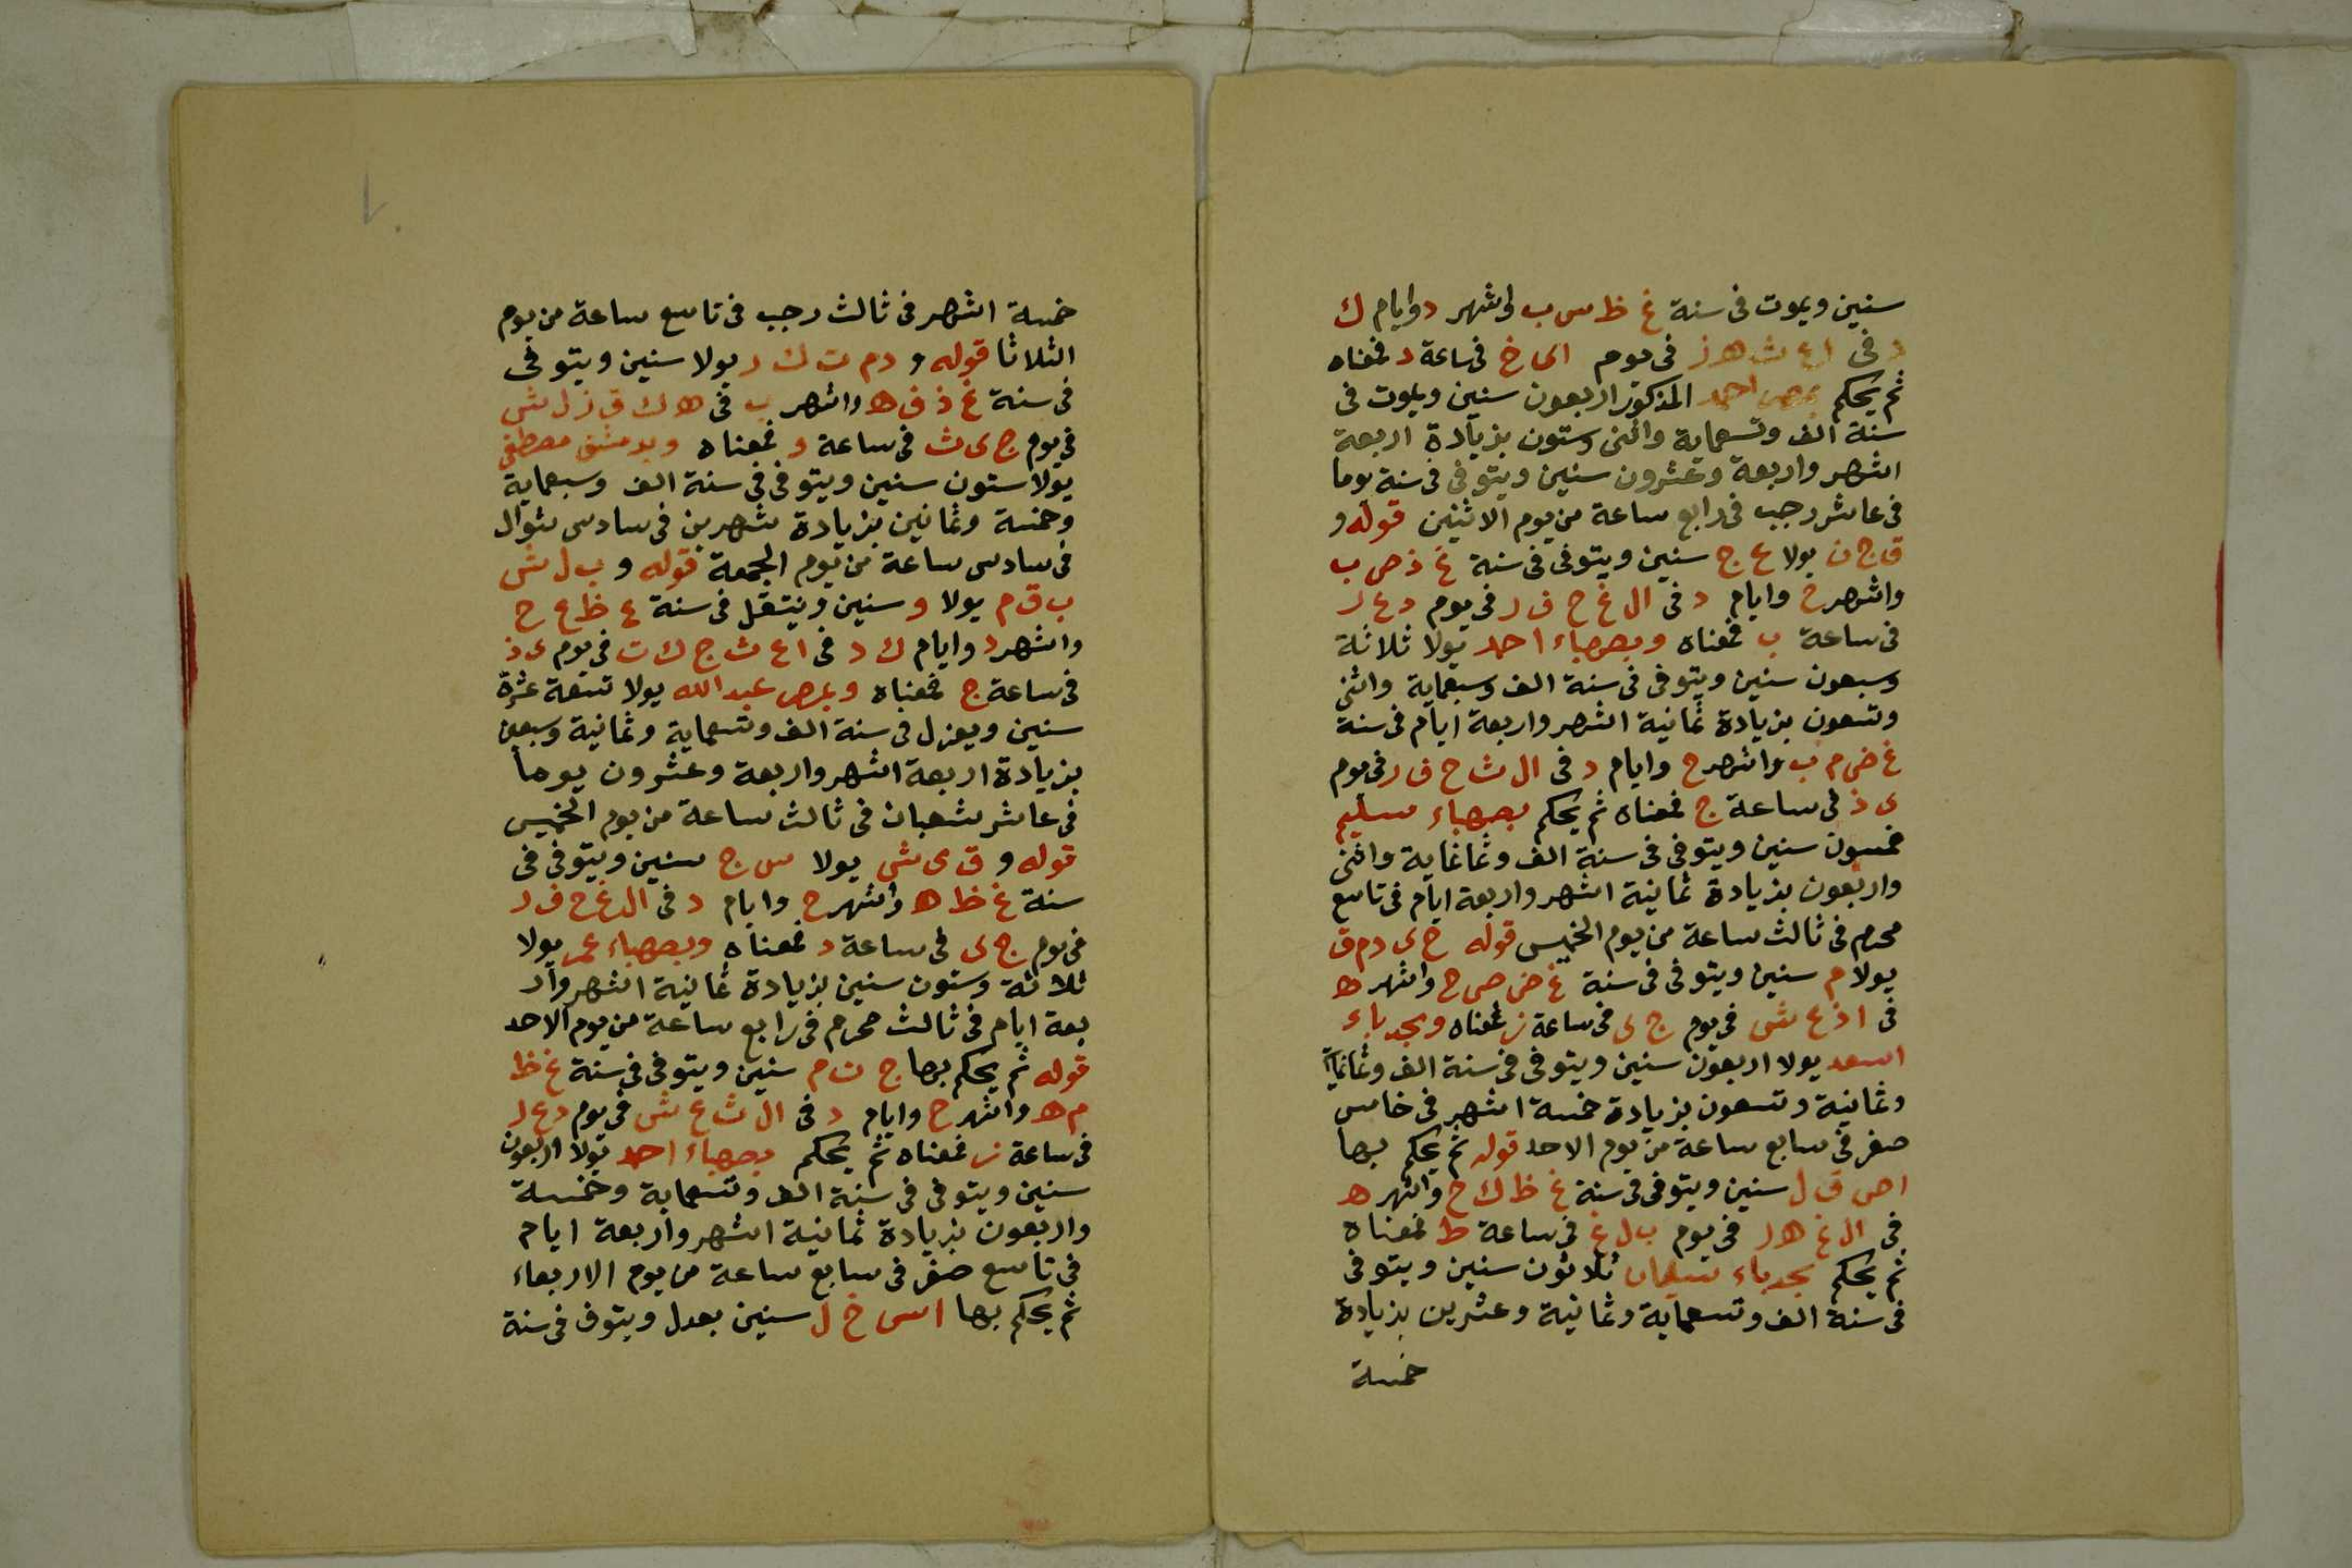 سنين ويموت فى سنة غ ظ س ب واشهر د وايام ك
د فى اع ث ه ز فى يوم الى خ فى ساعة د فمعناه
ثم يحكم بمصر احمد المذكور اربعون سنين ويموت فى
سنة الف وتسعماية واثنى وستون بزيادة اربعة
اشهر واربعة وعشرون سنين ويتوفى فى سنة يوما
فى عاشر رجب فى رابع ساعة من يوم الاثنين قوله و
ق ج ن يولا ع ج سنين ويتوفى فى سنة غ ذ ص ب
واشهر ح وايام د فى ال غ ح ف ر فى يوم د ع ر
فى ساعة ب فمعناه وبصهباء احمد يولا ثلاثة
وسبعون سنين ويتوفى فى سنة الف وسبعماية واثنى
وتسعون بزيادة ثمانية اشهر واربعة ايام فى سنة
غ ض م ب واشهر ح وايام د فى ال ث ح ف ر فى يوم
ى ذ فى ساعة ج فمعناه ثم يحكم بصهباء سليم
خمسون سنين ويتوفى فى سنة الف وثمانماية واثنى
واربعون بزيادة ثمانية اشهر واربعة ايام فى تاسع
محرم فى ثالث ساعة من يوم الخميس قوله خ ى د م ق
يولا م سنين ويتوفى فى سنة غ ض ص ح واشهر ه
فى ا ذ ع ش فى يوم ج ى فى ساعة ز فمعناه وبجدباء
اسعد يولا اربعون سنين ويتوفى فى سنة الف وثمانماية
وثمانية وتسعون بزيادة خمسة اشهر فى خامس
صفر فى سابع ساعة من يوم الاحد قوله ثم يحكم بها
ا ص ق ل سنين ويتوفى فى سنة غ ظ ك ح واشهر ه
فى ال غ ه ر فى يوم ب ل غ فى ساعة ط فمعناه
ثم يحكم بجدباء سليمان ثلاثون سنين ويتوفى
فى سنة الف وتسعماية وثمانية وعشرين بزيادة
خمسة
خمسة اشهر فى ثالث رجب فى تاسع ساعة من يوم
الثلاثا قوله و د م ت ك ر يولا سنين ويتوفى
فى سنة غ ذ ف ه واشهر ب فى ه ك ق ز ل ش
فى يوم ج ى ث فى ساعة و فمعناه وبدمشق مصطفى
يولا ستون سنين ويتوفى فى سنة الف وسبعماية
وخمسة وثمانين بزيادة شهرين فى سادس شوال
فى سادس ساعة من يوم الجمعة قوله و ب ل ش
ب ق م يولا و سنين وينتقل فى سنة غ ظ ع ح
واشهر د وايام ك د فى ا ع ث ج ك ت فى يوم ى ذ
فى ساعة ج فمعناه وبمصر عبد الله يولا تسعة عشرة
سنين ويعزل فى سنة الف وتسعماية وثمانية وسبعين
بزيادة اربعة اشهر واربعة وعشرون يوما
فى عاشر شعبان فى ثالث ساعة من يوم الخميس
قوله و ق ى ش يولا س ج سنين ويتوفى فى
سنة غ ظ ه واشهر ح وايام د فى ال غ ح ف ر
فى يوم ج ى فى ساعة د فمعناه وبصهباء عمر يولا
ثلاثة وستون سنين بزيادة ثمانية اشهر وار
بعة ايام فى ثالث محرم فى رابع ساعة من يوم الاحد
قوله ثم يحكم بها ج ن م سنين ويتوفى فى سنة غ ظ
م ه واشهر ح وايام د فى ال ث ع ش فى يوم د ع ر
فى ساعة ز فمعناه ثم يحكم بصهباء احمد يولا اربعون
سنين ويتوفى فى سنة الف وتسعماية وخمسة
واربعون بزيادة ثمانية اشهر واربعة ايام
فى تاسع صفر فى سابع ساعة من يوم الاربعاء
ثم يحكم بها اس خ ل سنين بعدل ويتوفى فى سنة